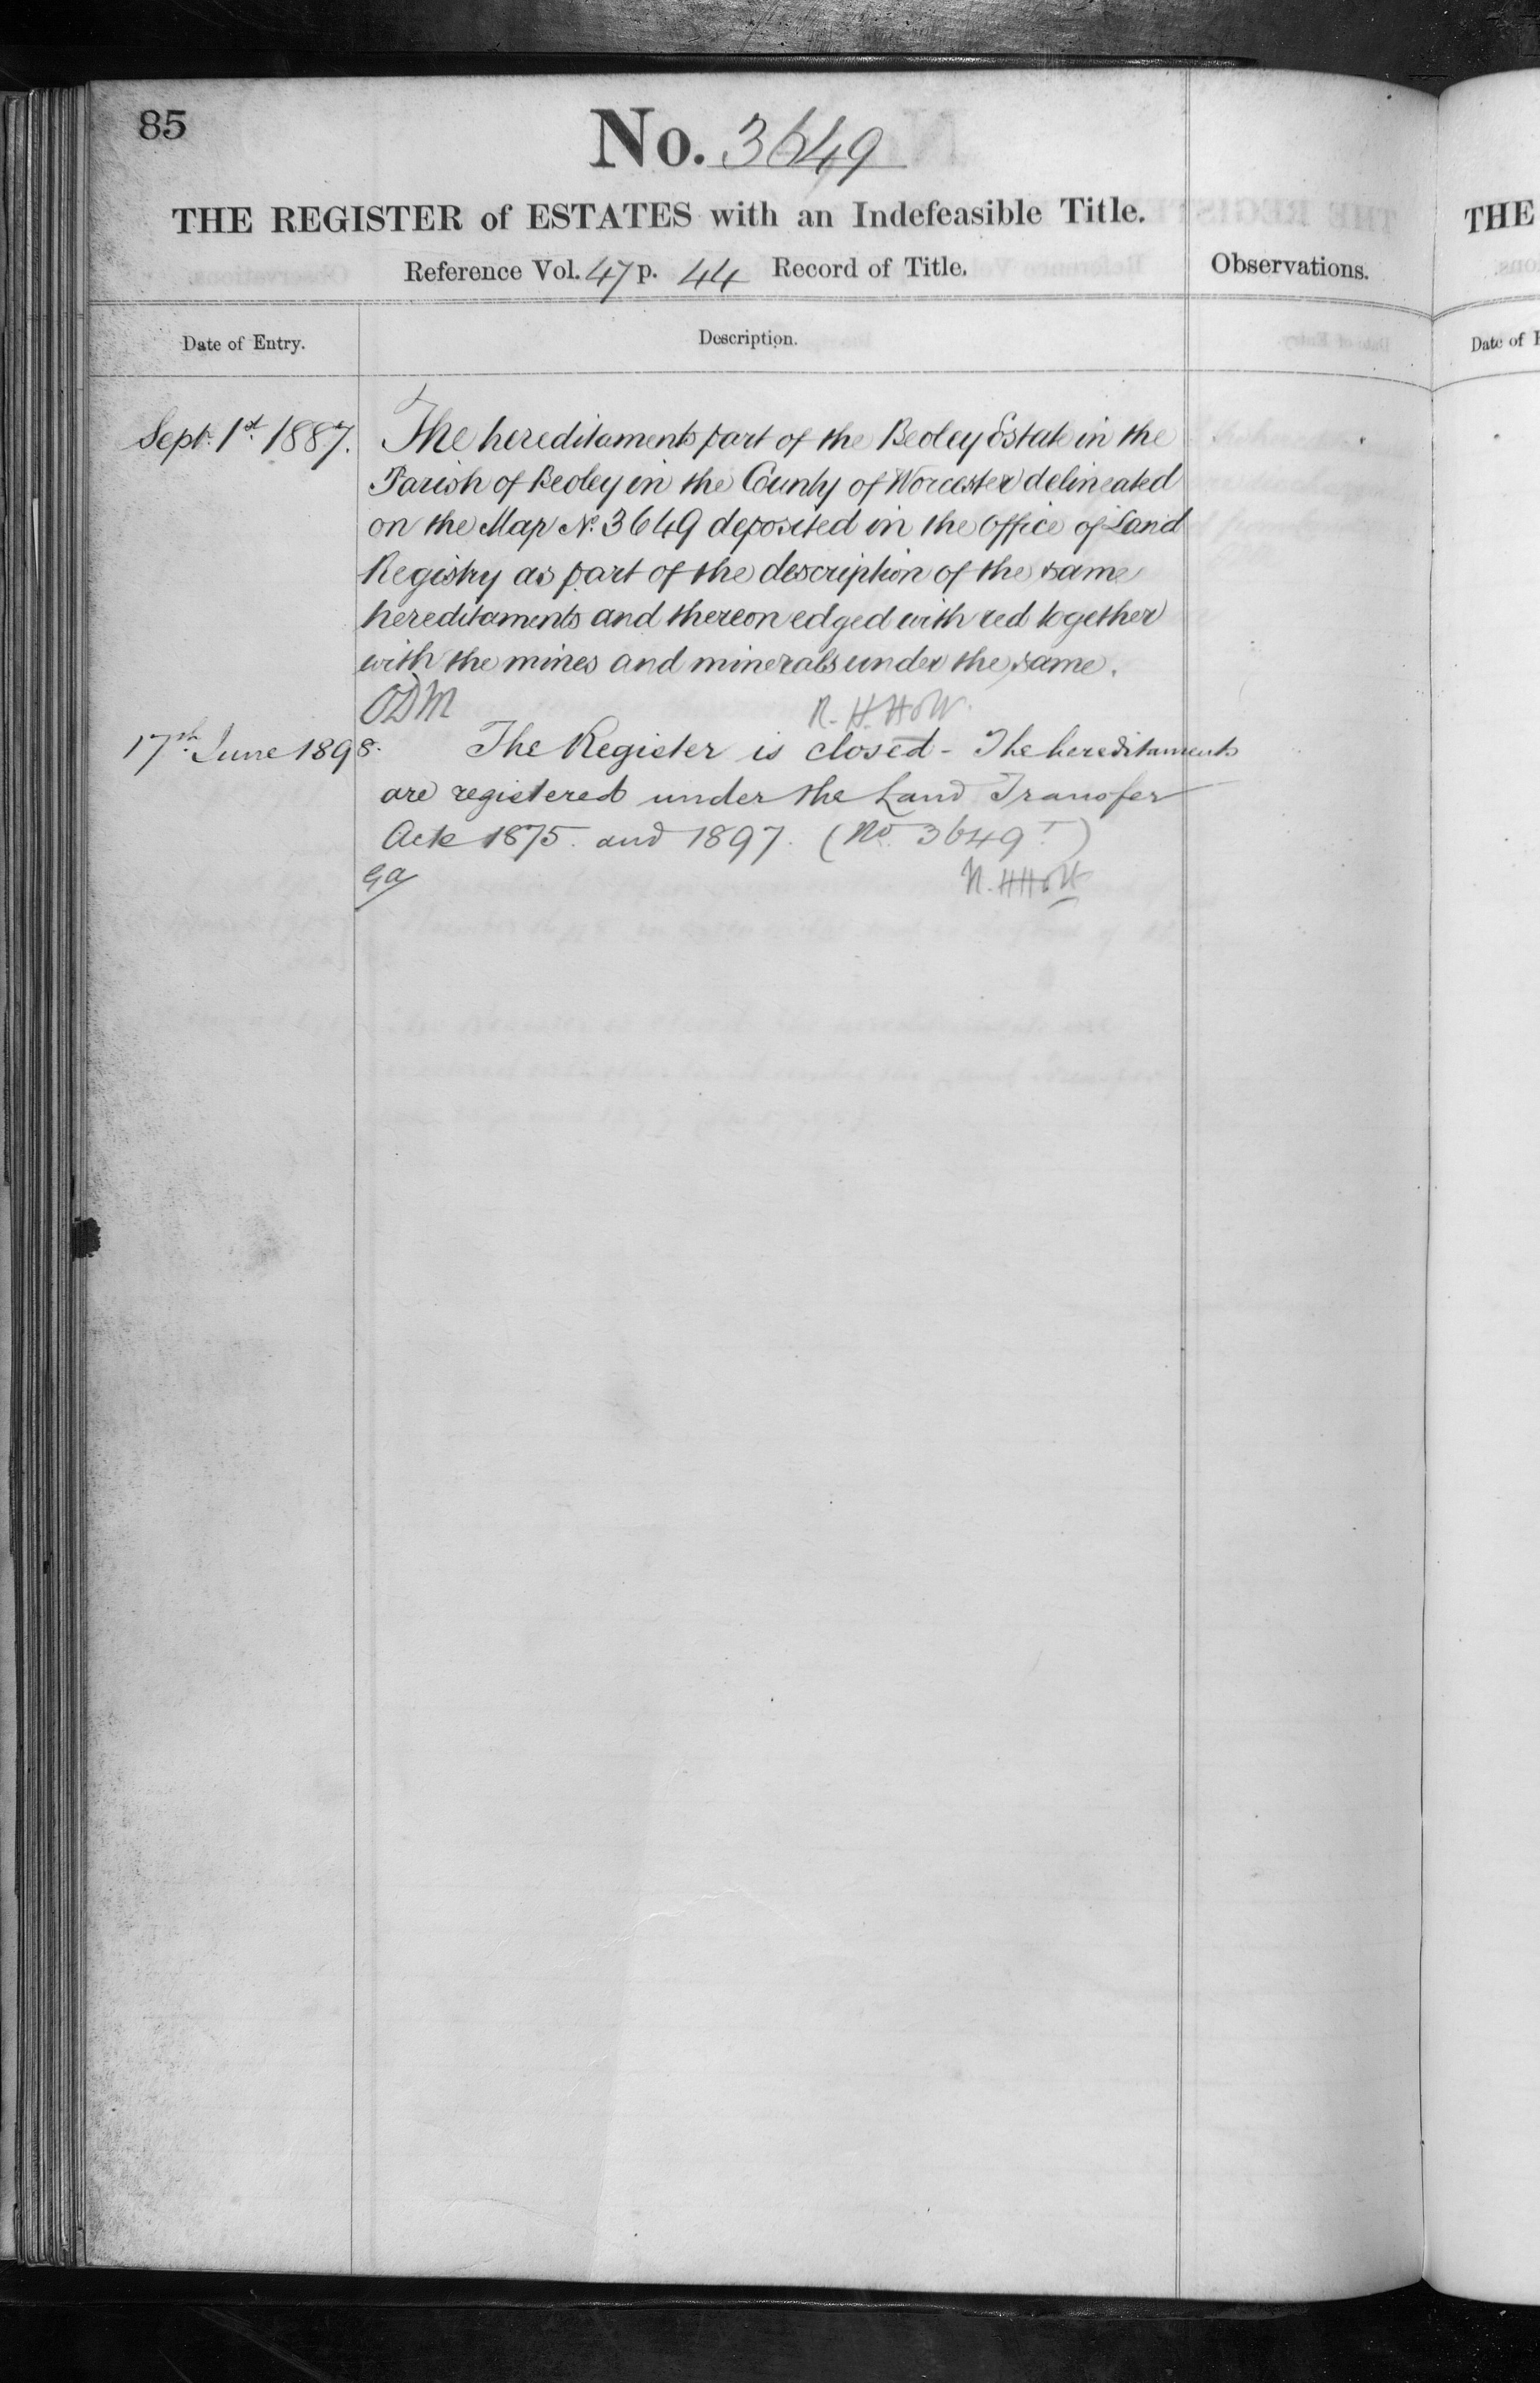 85
No. 3649
THE REGISTER of ESTATES with an Indefeasible Title.
Reference Vol. 47 p. 44 Record of Title.
Observations.
Date of Entry.
Description.
Sept. 1st 1887.
The hereditaments part of the Beoley Estate in the
Parish of Beoley in the County of Worcester delineated
on the Map No. 3649 deposited in the Office of Land
Registry as part of the description of the same
hereditaments and thereon edged with red together
with the mines and minerals under the same.
ODM
R. H. Holt.
17th June 1898.
The Register is closed - The hereditaments
are registered under the Land Transfer
Acts 1875 and 1897. (No. 3649T)
R. H Holt
THE
Date of